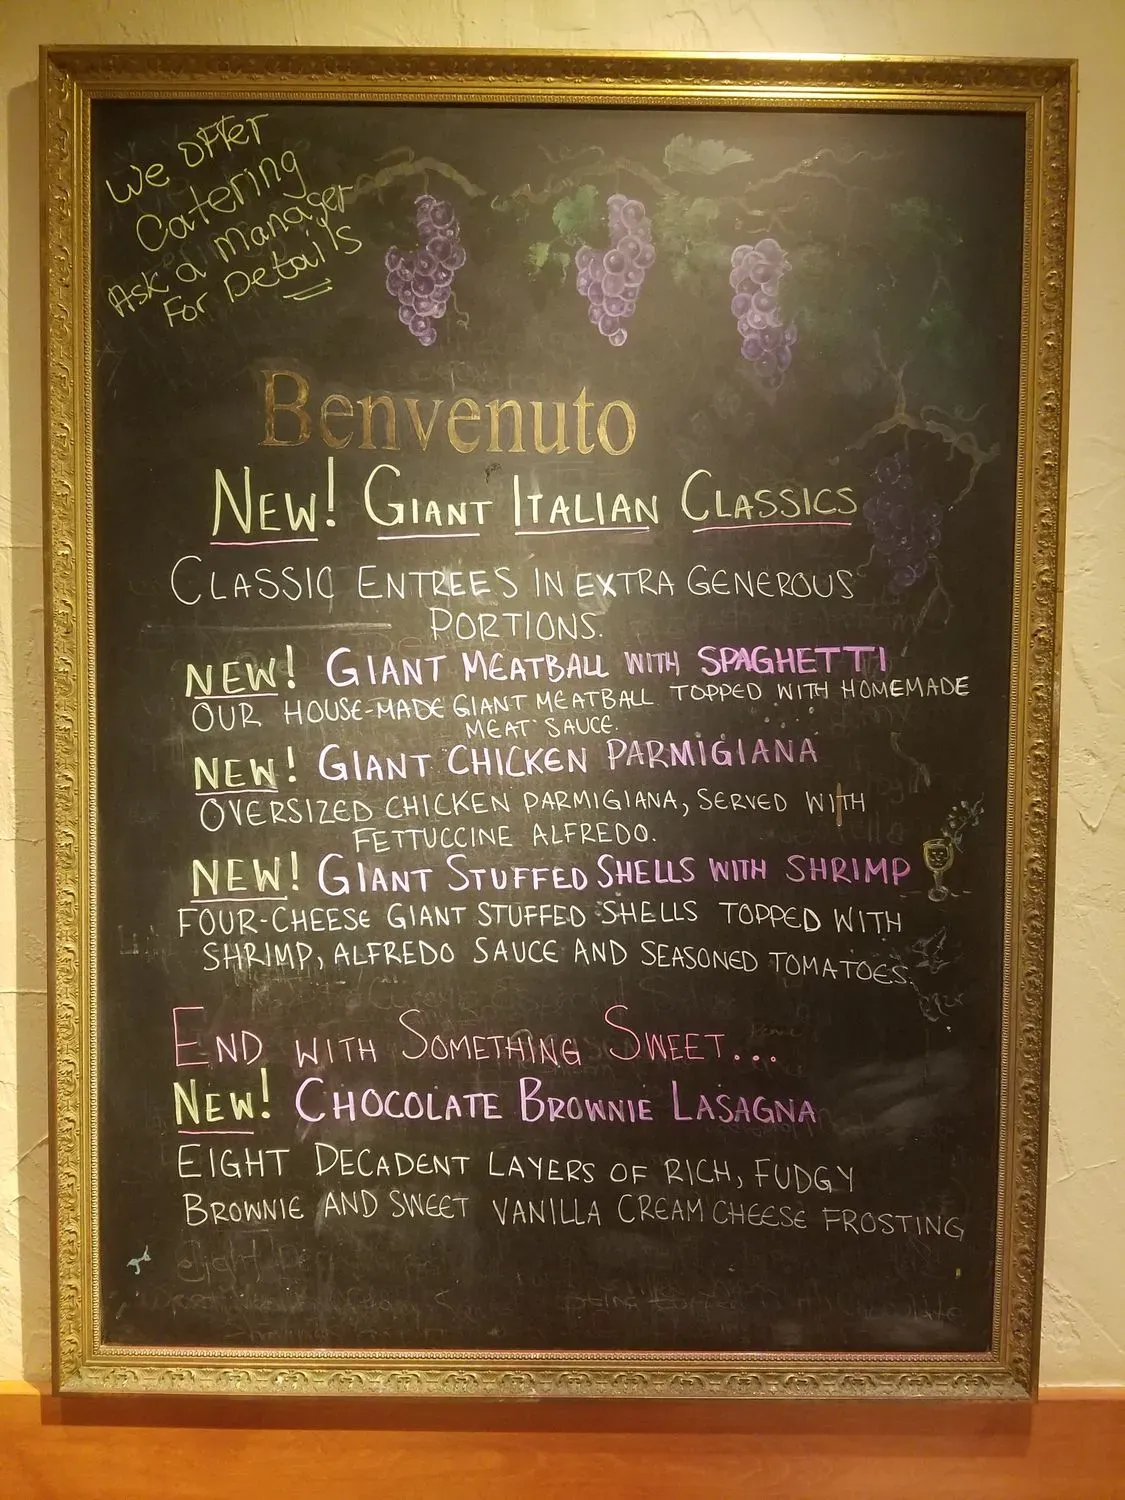 We offer
Catering
Ask a manager
For Details
Benvenuto
NEW! GIANT ITALIAN CLASSICS
CLASSIC ENTREES IN EXTRA GENEROUS
PORTIONS.
NEW! GIANT MEATBALL WITH SPAGHETTI
OUR HOUSE-MADE GIANT MEATBALL TOPPED WITH HOMEMADE
MEAT SAUCE.
NEW! GIANT CHICKEN PARMIGIANA
OVERSIZED CHICKEN PARMIGIANA, SERVED WITH
FETTUCCINE ALFREDO.
NEW! GIANT STUFFED SHELLS WITH SHRIMP
FOUR-CHEESE GIANT STUFFED SHELLS TOPPED WITH
SHRIMP, ALFREDO SAUCE AND SEASONED TOMATOES.
END WITH SOMETHING SWEET...
NEW! CHOCOLATE BROWNIE LASAGNA
EIGHT DECADENT LAYERS OF RICH, FUDGY
BROWNIE AND SWEET VANILLA CREAM CHEESE FROSTING